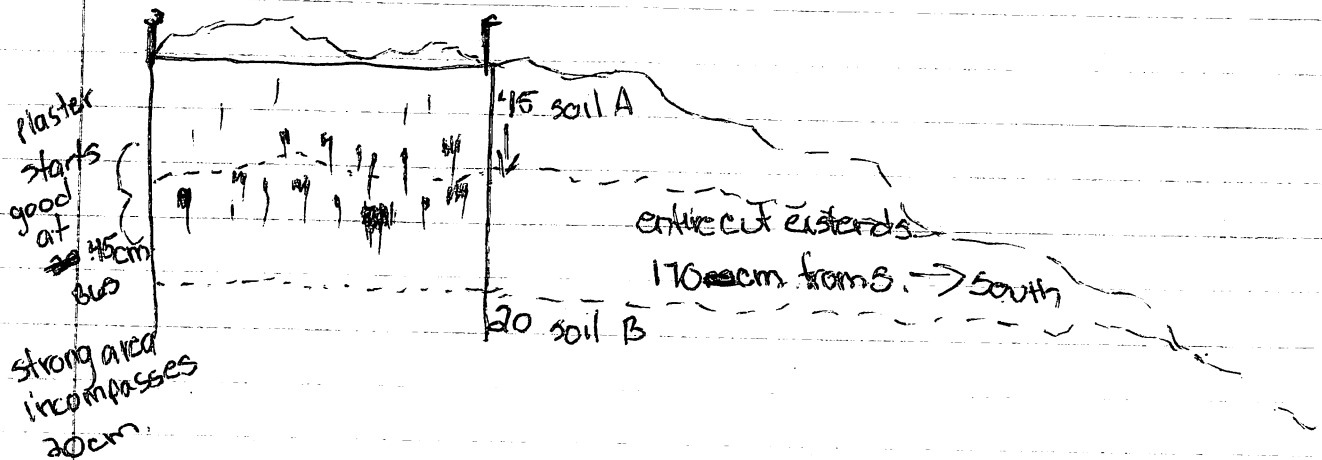 plaster
starts
good
at
45cm
BLS
strong area
incompasses
20cm.
45 soil A
entire cut extends
170 cm from S. -> South
20 soil B